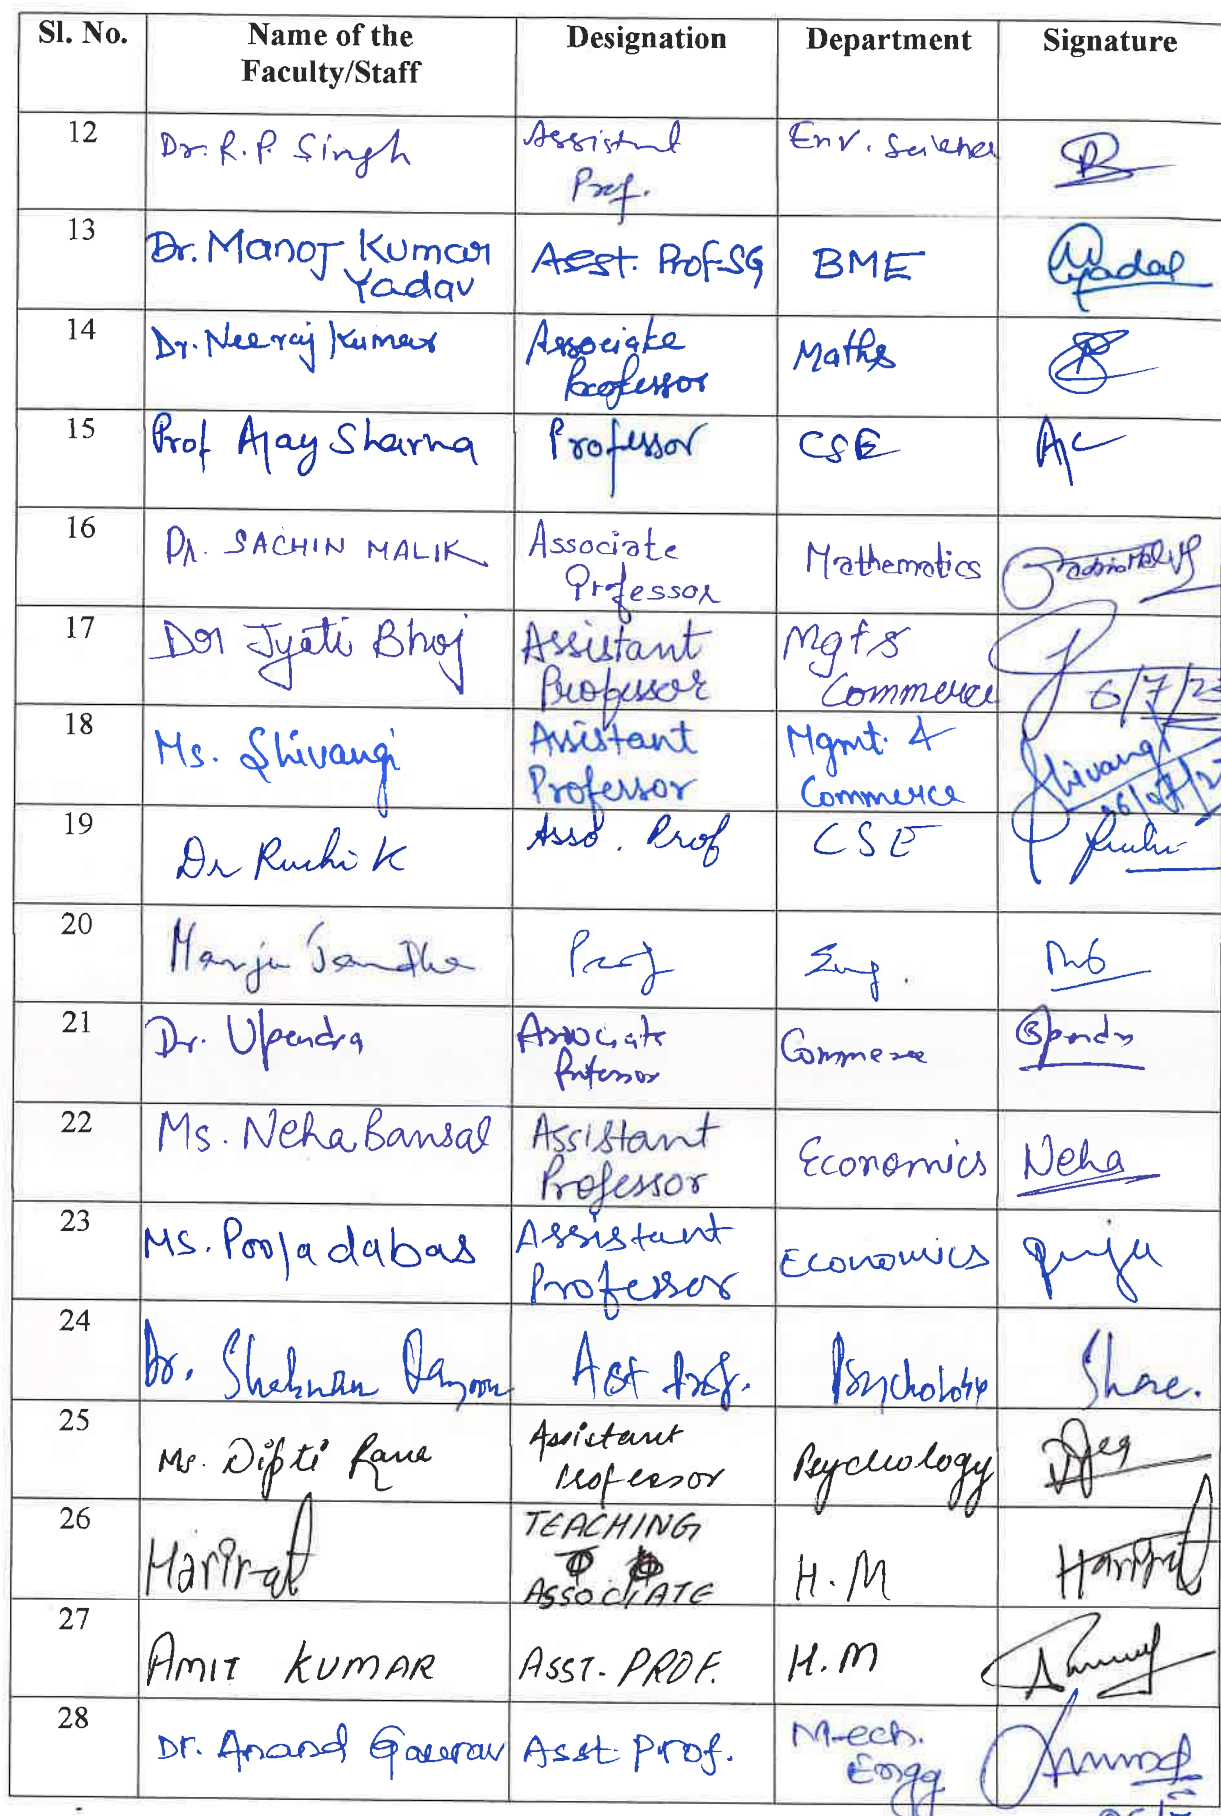 Sl. No. Name of the Faculty/Staff Designation Department Signature
12 Dr. R. P. Singh Assistant Prof. Env. Science
13 Dr. Manoj Kumar Yadav Asst. Prof-SG BME Yadav
14 Dr. Neeraj Kumar Associate Professor Maths
15 Prof Ajay Sharma Professor CSE
16 Dr. SACHIN MALIK Associate Professor Mathematics Sachin Malik
17 Dr Jyoti Bhoj Assistant Professor Mgt & Commerce 6/7/23
18 Ms. Shivangi Assistant Professor Mgmt. & Commerce Shivangi 06/07/23
19 Dr Ruchi K Asso. Prof CSE Ruchi
20 Manju Prof Eng.
21 Dr. Upendra Associate Professor Commerce Upendra
22 Ms. Neha Bansal Assistant Professor Economics Neha
23 Ms. Pooja dabas Assistant Professor Economics Pooja
24 Dr. Shabnam Ast Prof. Psychology
25 Ms. Dipti Rana Assistant Professor Psychology
26 Haripat TEACHING ASSOCIATE H.M Haripat
27 AMIT KUMAR ASST. PROF. H.M
28 Dr. Anand Gaurav Asst Prof. Mech. Engg Anand